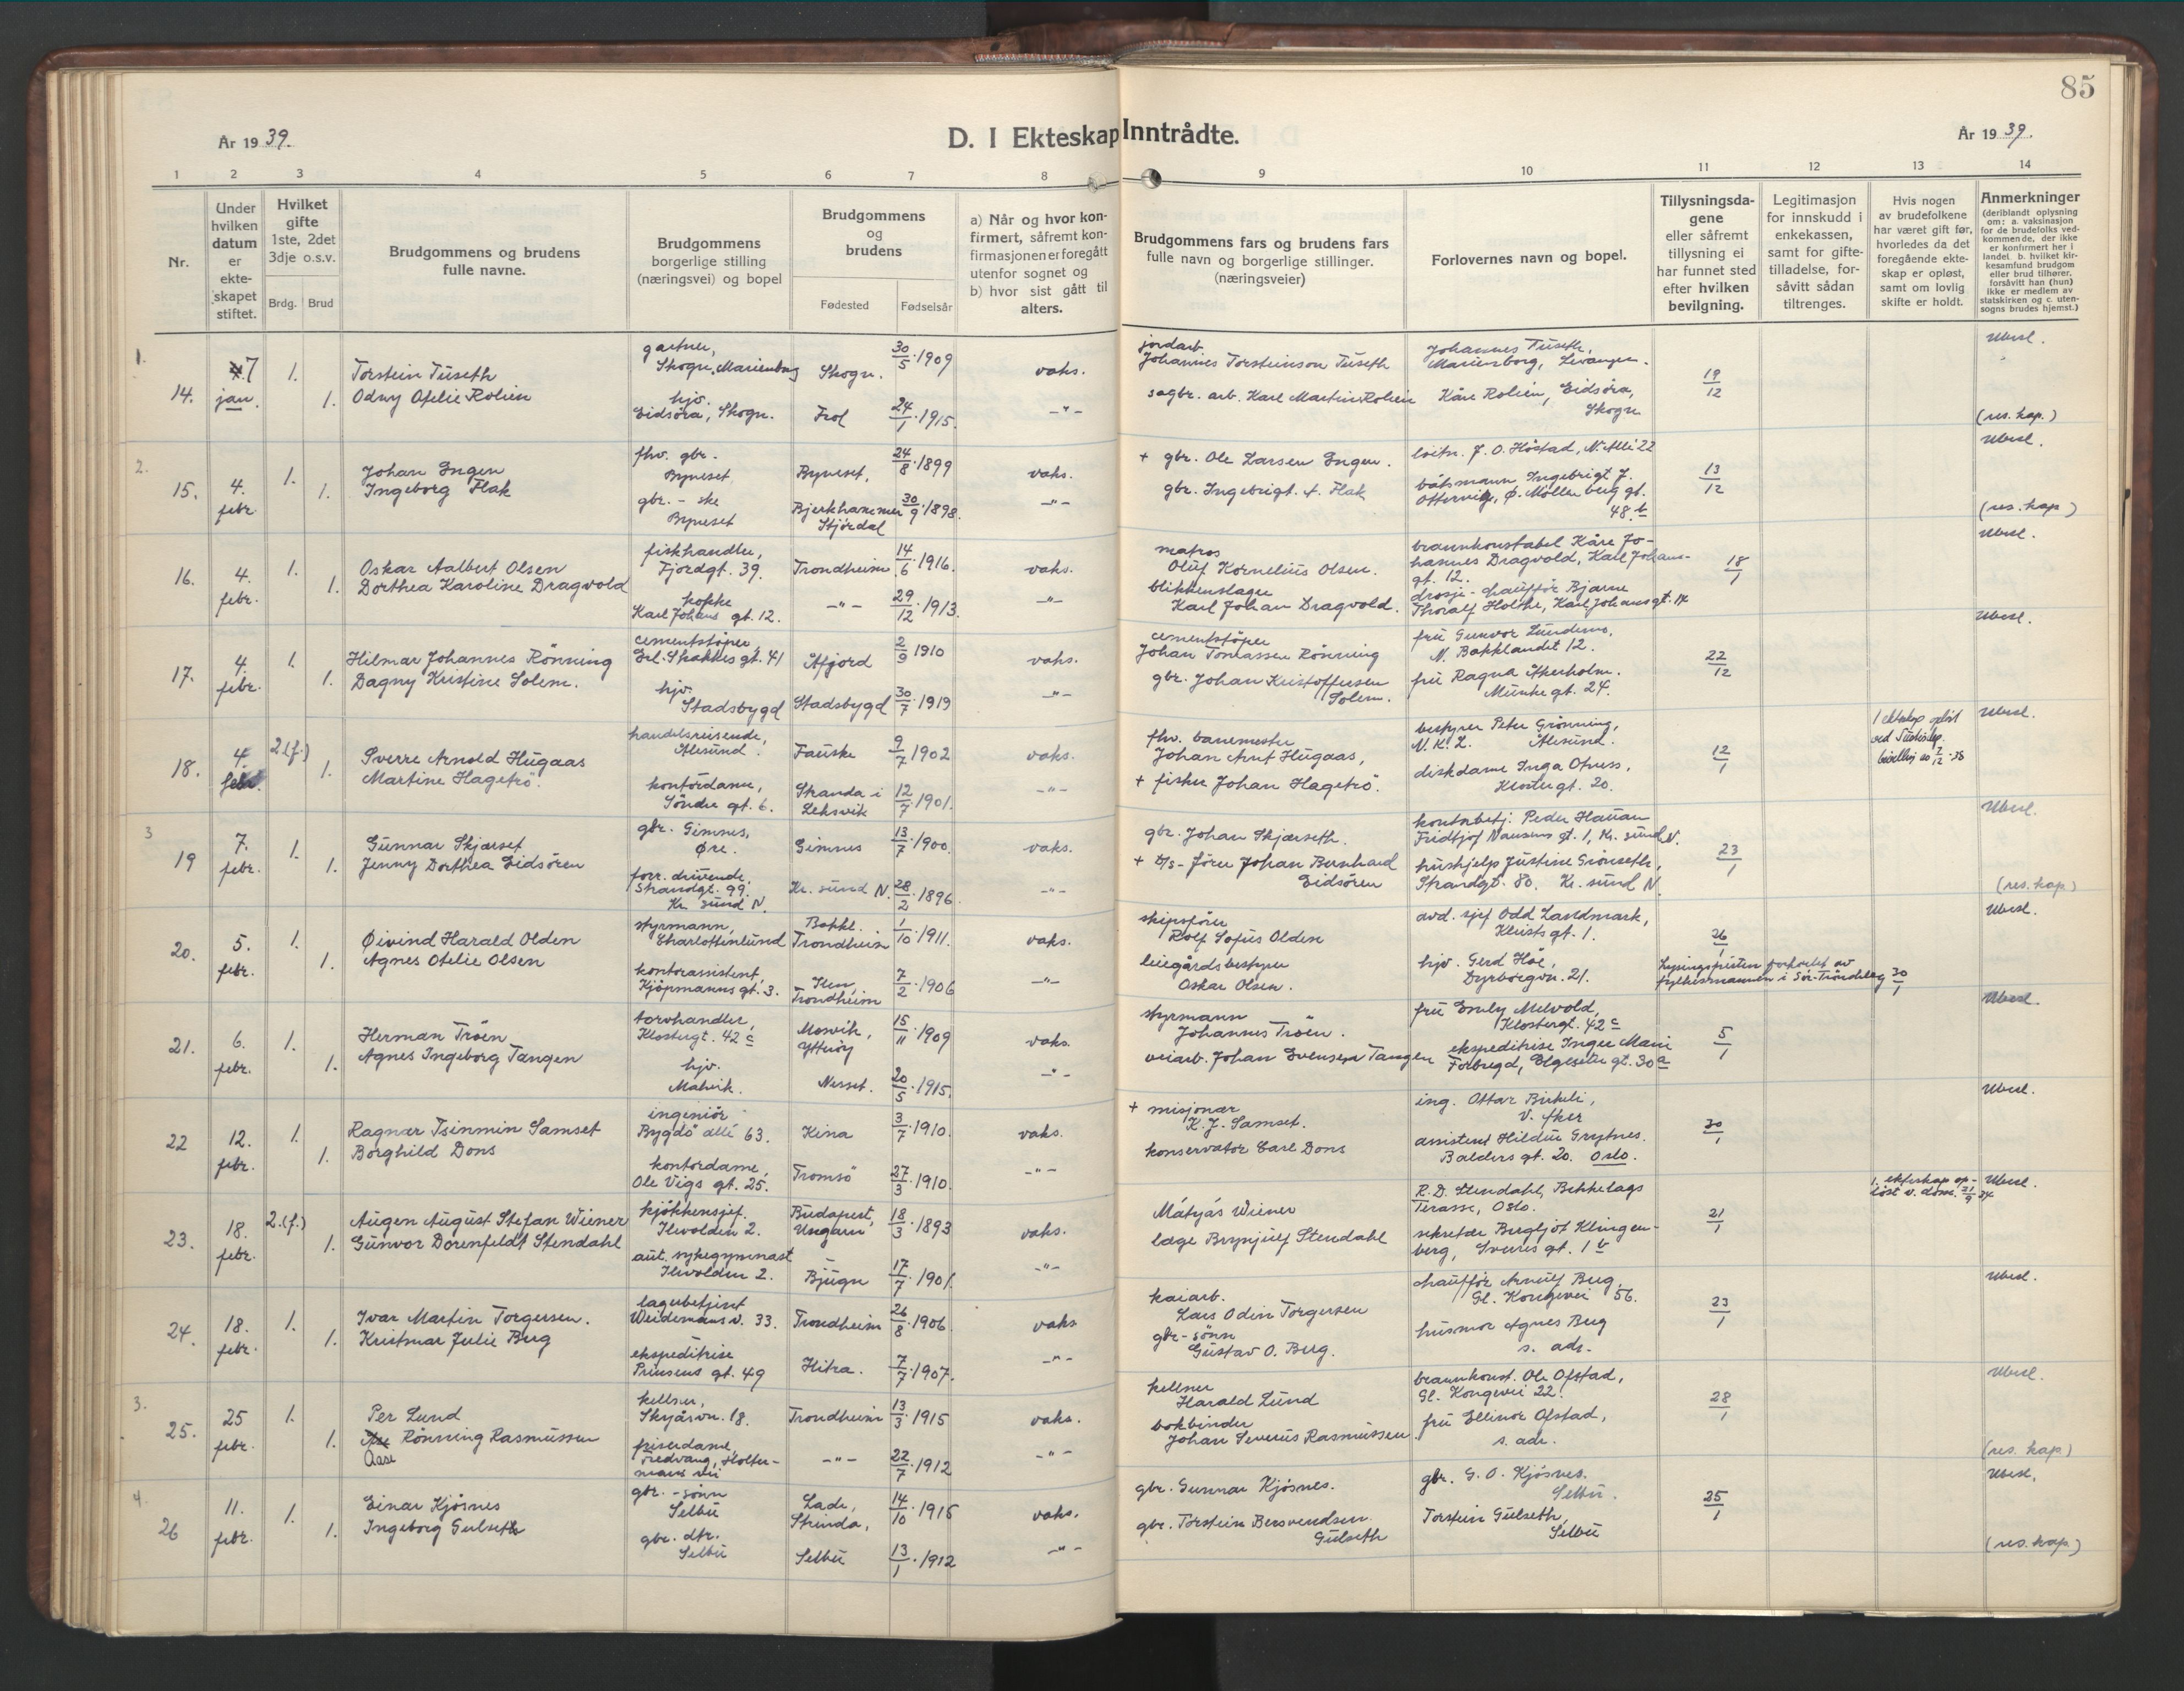 85
År 1939.
D. I Ekteskap Inntrådte.
År 1939.
1 2 3 4 5 6 7 8 9 10 11 12 13 14
Nr.
Under hvilken datum er ekteskapet stiftet.
Hvilket gifte 1ste, 2det 3dje o.s.v.
Brdg. Brud
Brudgommens og brudens fulle navne.
Brudgommens borgerlige stilling (næringsvei) og bopel
Brudgommens og brudens
Fødested Fødselsår
a) Når og hvor konfirmert, såfremt konfirmasjonen er foregått utenfor sognet og b) hvor sist gått til alters.
Brudgommens fars og brudens fars fulle navn og borgerlige stillinger. (næringsveier)
Forlovernes navn og bopel.
Tillysningsdagene eller såfremt tillysning ei har funnet sted efter hvilken bevilgning.
Legitimasjon for innskudd i enkekassen, samt for giftetilladelse, forsåvitt sådan tiltrenges.
Hvis nogen av brudefolkene har været gift før, hvorledes da det foregående ekteskap er opløst, samt om lovlig skifte er holdt.
Anmerkninger (deriblandt oplysning om: a. vaksinasjon for de brudefolks vedkommende, der ikke er konfirmert her i landet. b. hvilket kirkesamfund brudgom eller brud tilhører, forsåvitt han (hun) ikke er medlem av statskirken og c. utensogns brudes hjemst.)
1.
14. 7 jan. 1. Torstein Tuseth gartner, Skogn, Marienborg Skogn. 30/5 1909 vaks. jordarb. Johannes Torsteinson Tuseth Johannes Tuseth, Marienborg, Levanger. 19/12 Ubesl.
1. Odny Ofelie Rolien hjv. Eidsøra, Skogn. Frol 24/1 1915. -"- sagbr. arb. Karl Martin Rolien Kåre Rolien, Eidsøra, Skogn (res. kap.)
2.
15. 4. febr. 1. Johan Engen fhv. gbr. Byneset Byneset, 24/8 1899 vaks. + gbr. Ole Larsen Engen. løitn. J. O. Høstad, N. Allé 22 13/12 Ubesl.
1. Ingeborg Flak gbr. - ske Byneset Bjerkhammer Stjørdal 30/9 1898. -"- gbr. Ingebrigt Flak båtsmann Ingebrigt J. Ottervig, Ø. Møllenberg gt. 48 b (res. kap)
16. 4. febr. 1. Oskar Aalbert Olsen fiskhandler, Fjordgt. 39. Trondheim 14/6 1916. vaks. matros Oluf Kornelius Olsen. brannkonstabel Kåre Johannes Dragvold, Karl Johansgt. 12. 18/1 Ubesl.
1. Dorthea Karoline Dragvold kokke Karl Johans gt. 12. -"- 29/12 1913. -"- blikkenslager Karl Johan Dragvold. drosje-chauffør Bjarne Thoralf Holthe, Karl Johansgt. 14
17. 4. febr. 1. Hilmar Johannes Rönning cementstøper, Erl. Skakkes gt. 41 Åfjord 2/9 1910 vaks. cementstøper Johan Tomassen Rönning fru Gunvor Lundemo, N. Bakklandet 12. 22/12 Ubesl.
1. Dagny Kristine Solem. hjv. Stadsbygd Stadsbygd 30/7 1919 -"- gbr. Johan Kristoffersen Solem. fru Ragna Åkerholm. Munkegt. 24.
18. 4. febr. 2.(f.) Sverre Arnold Hugaas handelsreisende, Ålesund. Fauske 9/7 1902 vaks. fhv. banemester Johan Arnt Hugaas, bestyrer Peter Grønning, N.K.L. Ålesund. 12/1 1 ekteskap opløst ved Justisdep. bevilling av 2/12-38 Ubesl.
1. Martine Hagetrö. kontordame, Söndre gt. 6. Stranda i Leksvik 12/7 1901. -"- + fisker Johan Hagetrö. diskdame Inga Opuss, Klostergt. 20.
3
19 7. febr. 1. Gunnar Skjærset gbr. Gimnes, Øre. Gimnes 13/7 1900. vaks. gbr. Johan Skjærseth. kontorbetj. Peder Hanan Fridtjof Nansens gt. 1, Kr. sund N. 23/1 Ubesl.
1. Jenny Dorthea Eidsören forr. drivende, Strandgt. 99. Kr. sund N. Kr. sund N. 28/2 1896. -"- + D/S-fører Johan Bernhard Eidsören hushjelp Justine Grönseth, Strandgt. 80. Kr. sund N. (res. kap.)
20. 5. febr. 1. Øivind Harald Olden styrmann, Charlottenlund Bakkl. Trondheim 1/10 1911. vaks. skipsfører Rolf Sofus Olden avd. sjef Odd Landmark, Kleistsgt. 1. 26/1 Ubesl.
1. Agnes Otelie Olsen kontorassistent, Kjöpmannsgt. 3. Ilen, Trondheim 7/2 1906 -"- leiegårdsbestyrer Oskar Olsen. hjv. Gerd Hoe, Dyrborgvn. 21. Lysningsfristen forkortet av fylkesmannen i Sör-Tröndelag 30/1
21. 6. febr. 1. Herman Tröen torvhandler, Klostergt. 42 c Mosvik, Ytterøy 15/11 1909 vaks. styrmann Johannes Tröen. fru Emly Melvold, Klostergt. 42 c 5/1 Ubesl.
1. Agnes Ingeborg Tangen hjv. Malvik. Nesset. 20/5 1915. -"- veiarb. Johan Svensen Tangen ekspeditrise Inger Marie Forbregd, Elgeseter gt. 30 a
22 12. febr. 1. Ragnar Tsinmin Samset ingeniör Bygdö allé 63. Kina 3/7 1910. vaks. + misjonær K. J. Samset. ing. Ottar Birkeli, V. Aker 30/1 Ubesl.
1. Borghild Dons kontordame, Ole Vigs gt. 25. Tromsö 27/3 1910. -"- konservator Carl Dons assistent Hildur Grytnes. Balders gt. 20. Oslo.
23. 18. febr. 2.(f.) Augen August Stefan Wiener kjøkkensjef. Ilevolden 2. Budapest, Ungarn 18/3 1893 vaks. Mátyás Wiener R. D. Stendahl, Bekkelags Terasse, Oslo. 21/1 1. ekteskap opløst v. dom. 21/9 34 Ubesl.
1. Gunvor Dorenfeldt Stendahl aut. sykegymnast Ilevolden 2. Bjugn 17/7 1901. -"- læge Brynjulf Stendahl sekretær Bergljot Klingenberg, Sverres gt. 1 b
24. 18. febr. 1. Ivar Martin Torgersen. lagerbetjent Weidemans v. 33. Trondheim 26/8 1906 vaks kaiarb. Lars Odin Torgersen chauffør Arnulf Berg, Gl. Kongevei 56. 23/1 Ubesl.
1. Kristmar Julie Berg ekspeditrise Prinsens gt. 49 Hitra. 7/7 1907. -"- gbr-sønn Gustav O. Berg. husmor Agnes Berg s. adr.
3.
25. 25 febr. 1. Per Lund kellner, Skyåsvn. 18. Trondheim 13/3 1915 vaks. kellner Harald Lund brannkonst. Ole Ofstad, Gl. Kongevei 22. 28/1 Ubesl.
1. Aase Rönning Rasmussen friserdame, Fredvang, Holtermans vei -"- 22/7 1912 -"- bokbinder Johan Severus Rasmussen. fru Ellinor Ofstad, s. adr. (res. kap)
4.
26 11. febr. 1. Einar Kjösnes gbr. -sønn Selbu Lade, Strinda, 14/10 1915 vaks. gbr. Gunnar Kjösnes. gbr. G. O. Kjösnes. Selbu. 25/1 Ubesl.
1. Ingeborg Gulseth gbr. dtr. Selbu Selbu 13/1 1912 -"- gbr. Torstein Bersvendsen Gulseth Torstein Gulseth, Selbu (res. kap.)